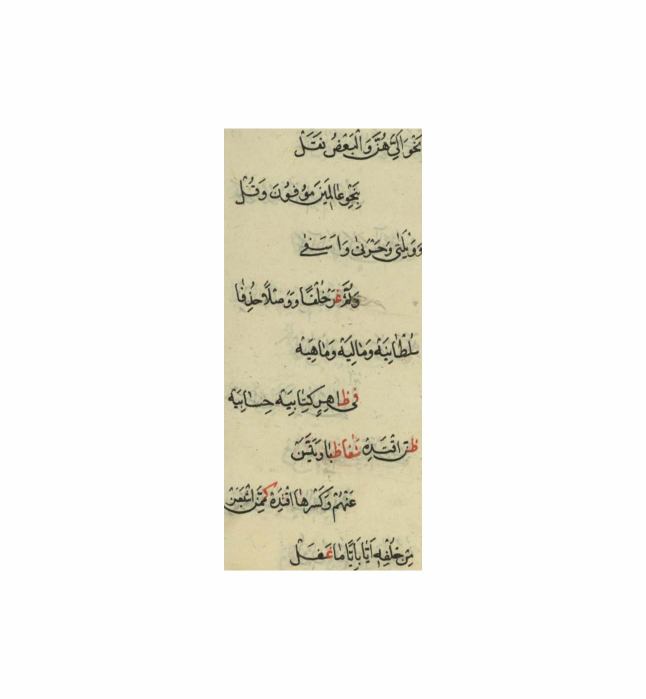 نَحْوَ إِلَىَّ هُنَّ وَالْبَعْضُ نَقَلْ
بِنَحْوِ عَالَمِينَ مُوفُونَ وَقُلْ
وَوَيْلَتَى وَحَسْرَتَى وَاَسَفَى
وَثَمَّ غَرْ خُلْفًا وَوَصْلًا حَذِفَا
سُلْطَانِيَهْ وَمَالِيَهْ وَمَاهِيَهْ
فِى ظَاهِرٍ كِتَابِيَهْ حِسَابِيَهْ
ظَنَّ اقْتَدِهْ شَفَا ظَبًا وَيَتَّسَنْ
عَنْهُمْ وَكَسْرُهَا اقْتَدِهْ كِسْ اَشْبِعَنْ
مِنْ خُلْفِهِ اَيًّا بِاَيًّا مَا غَفَلْ